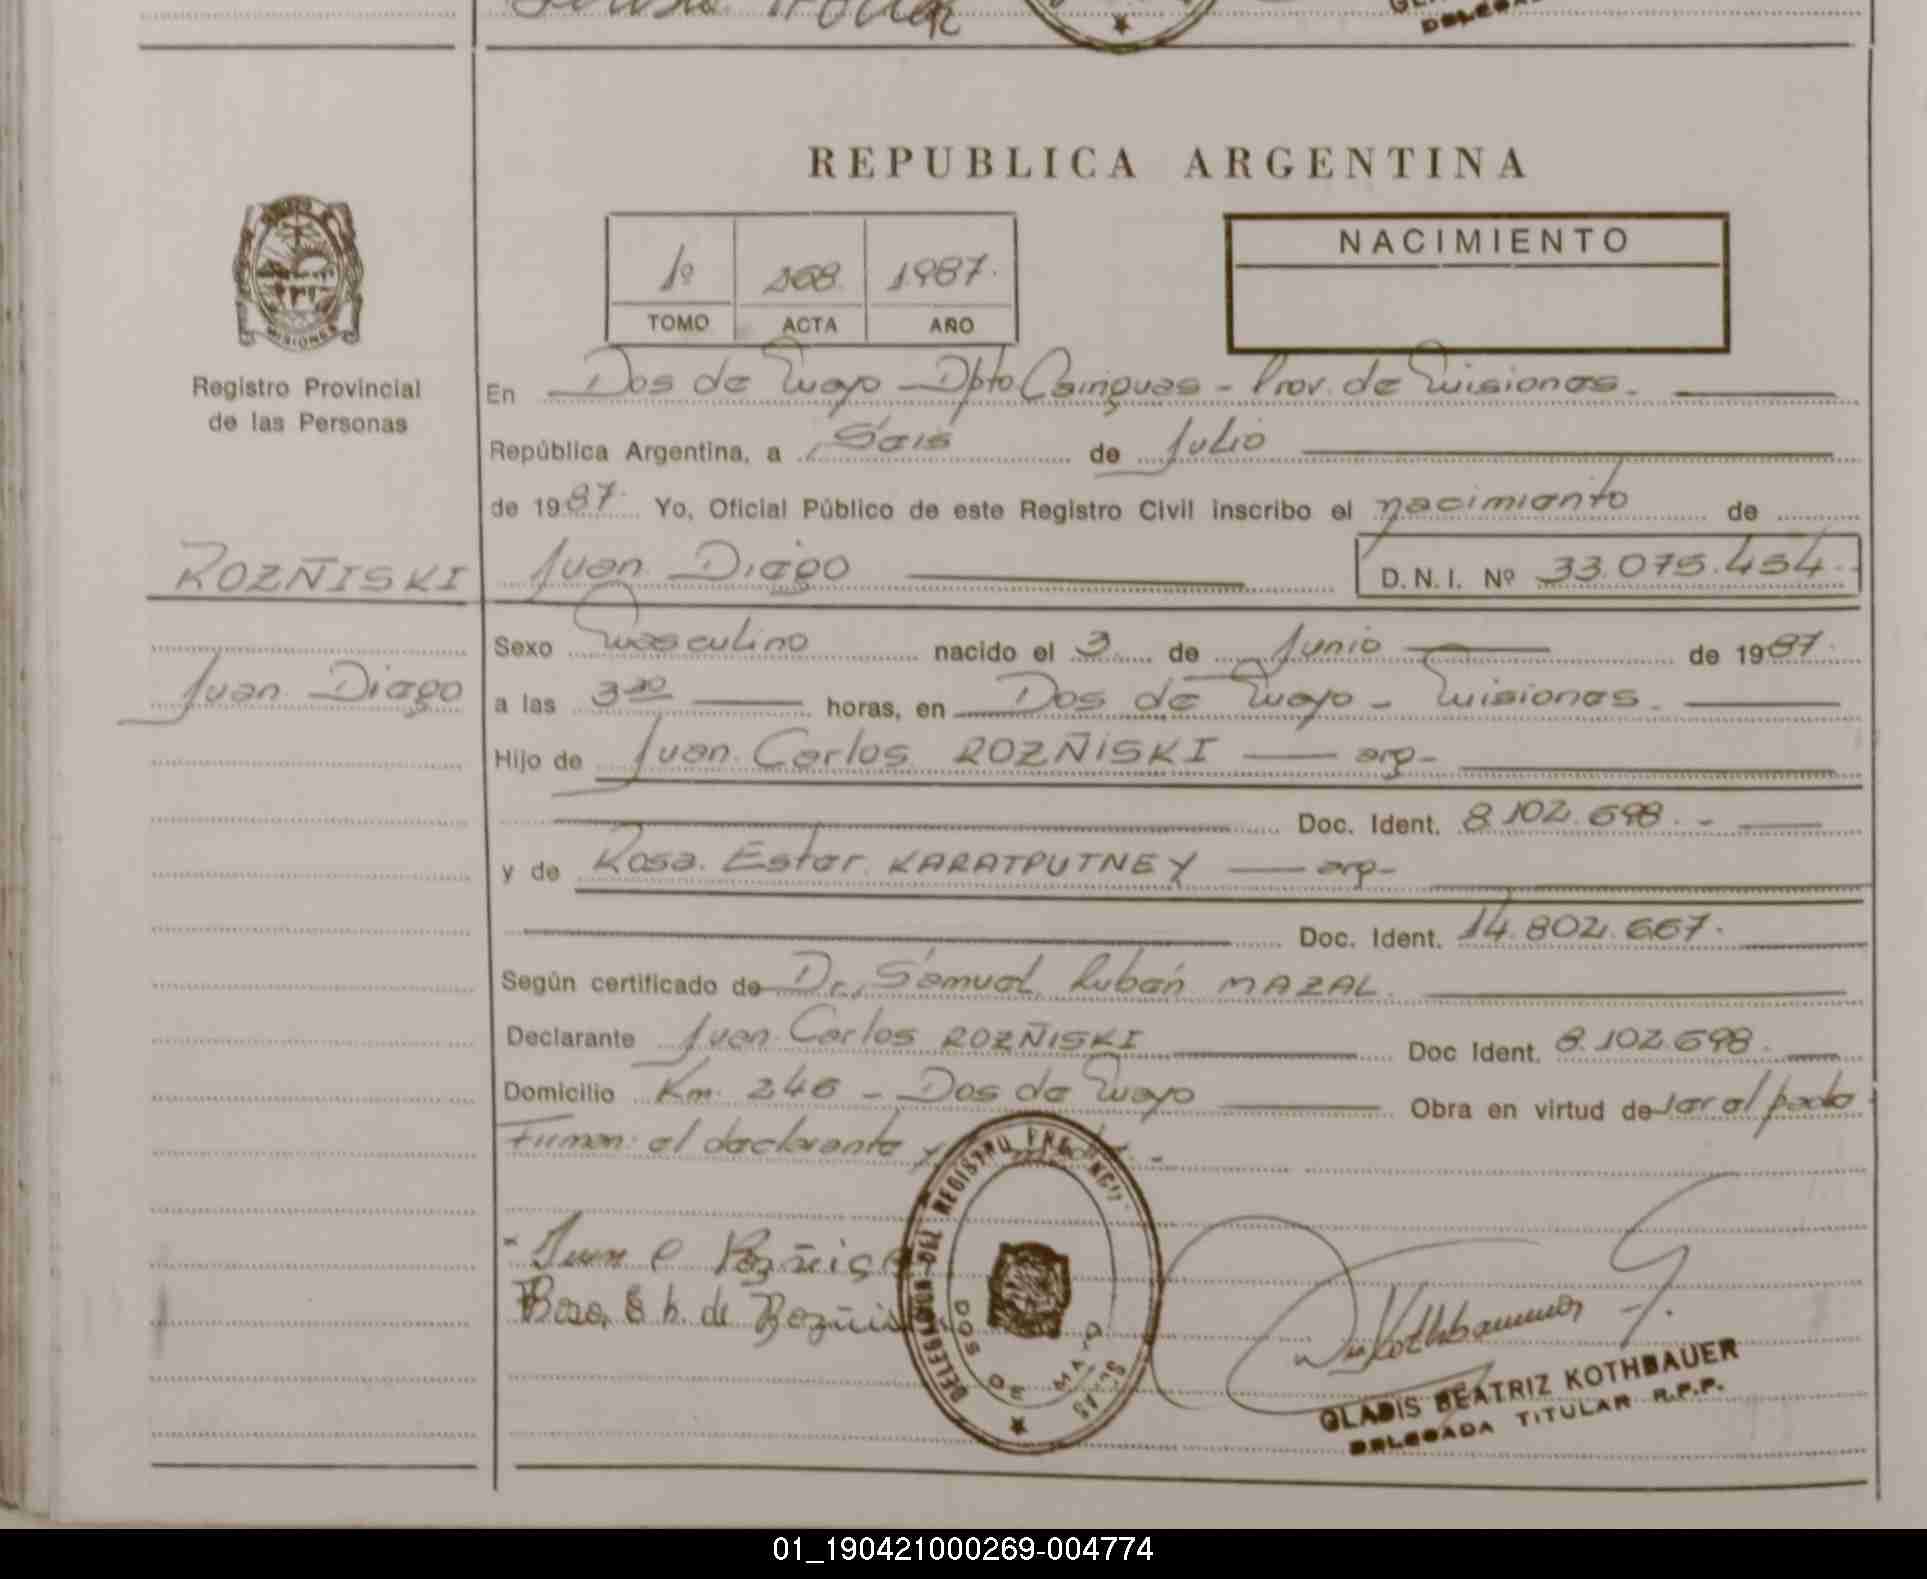 REPUBLICA ARGENTINA
NACIMIENTO
1º 168 1987.
TOMO ACTA AÑO
MISIONES
Registro Provincial
de las Personas
En Dos de Mayo - Dpto. Cainguas - Prov. de Misiones.
República Argentina, a Seis de Julio
de 1987. Yo, Oficial Público de este Registro Civil inscribo el nacimiento de
ROZÑISKI Juan Diego D.N.I. Nº 33.075.454.-
Sexo Masculino nacido el 3 de Junio de 1987.
Juan Diego
a las 3 30 horas, en Dos de Mayo - Misiones.
Hijo de Juan Carlos ROZÑISKI arg-
Doc. Ident. 8.102.698.-
y de Rosa Ester KARATPUTNEY arg-
Doc. Ident. 14.802.667.
Según certificado de Dr. Samuel Rubén MAZAL.
Declarante Juan Carlos ROZÑISKI Doc Ident. 8.102.698.
Domicilio Km. 246 - Dos de Mayo Obra en virtud de ser el padre.
Firman: el declarante y
Juan C Rozñis
de Rozñis
DELEGACION DEL REGISTRO
DOS DE MAYO
Kothbauer
GLADIS BEATRIZ KOTHBAUER
DELEGADA TITULAR R.P.P.
01_190421000269-004774